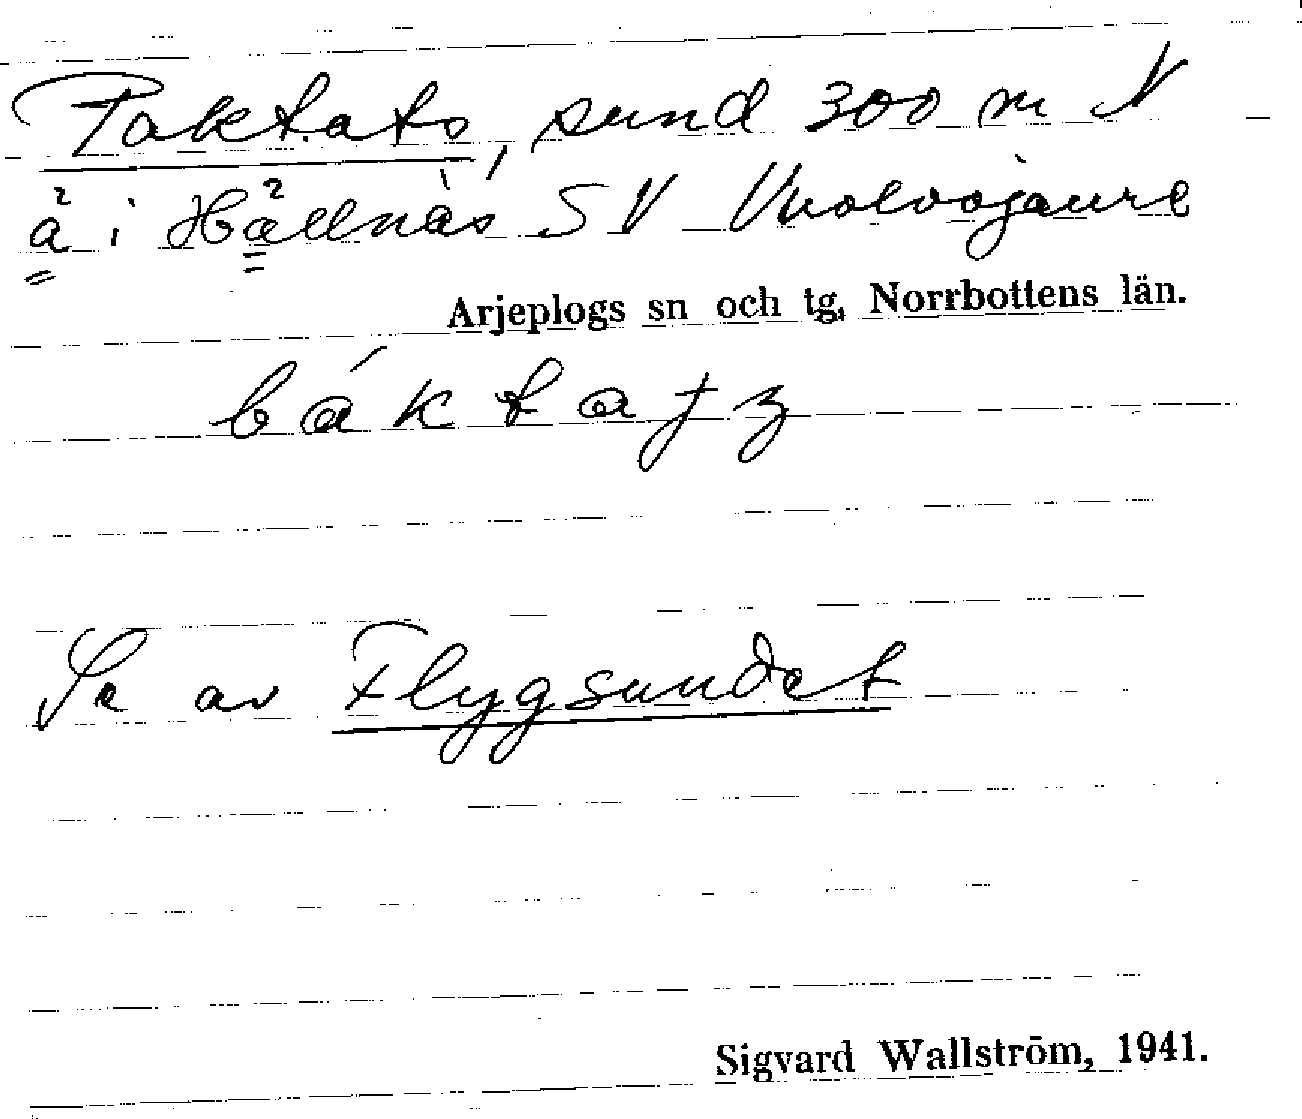 Paktats, sund 300 m N
å i Hällnäs SV Vuolvojaure
Arjeplogs sn och tg, Norrbottens län.
báktaʒ
Se av Flygsundet
Sigvard Wallström, 1941.